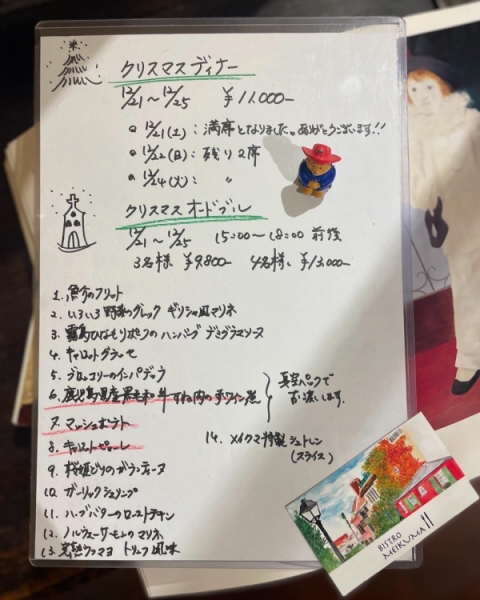 クリスマスディナー
12/21〜12/25 ¥11.000-
12/21(土):満席となりました。ありがとうございます!!
12/22(日):残り2席
12/24(火): 〃
クリスマスオードブル
12/21〜12/25 15:00〜18:00 前後
3名様 ¥9.800- 4名様 ¥13.000-
1. のフリット
2. いろいろ野菜のグレック ギリシャ風マリネ
3. 霧島ひなもりポークのハンバーグ デミグラスソース
4. キャロットグラッセ
5. ブロッコリーのインパデッラ
6. 鹿児島県産黒毛和牛すね肉の赤ワイン煮
7. マッシュポテト
8. キャロットピューレ
真空パックで
お渡しします。
9. 桜姫どりのガランティーヌ
10. ガーリックシュリンプ
11. ハーブバターのローストチキン
12. ノルウェーサーモンのマリネ
13. ウフマヨ トリュフ風味
14. メイクマ特製シュトレン
(スライス)
BISTRO
MEIKUMA